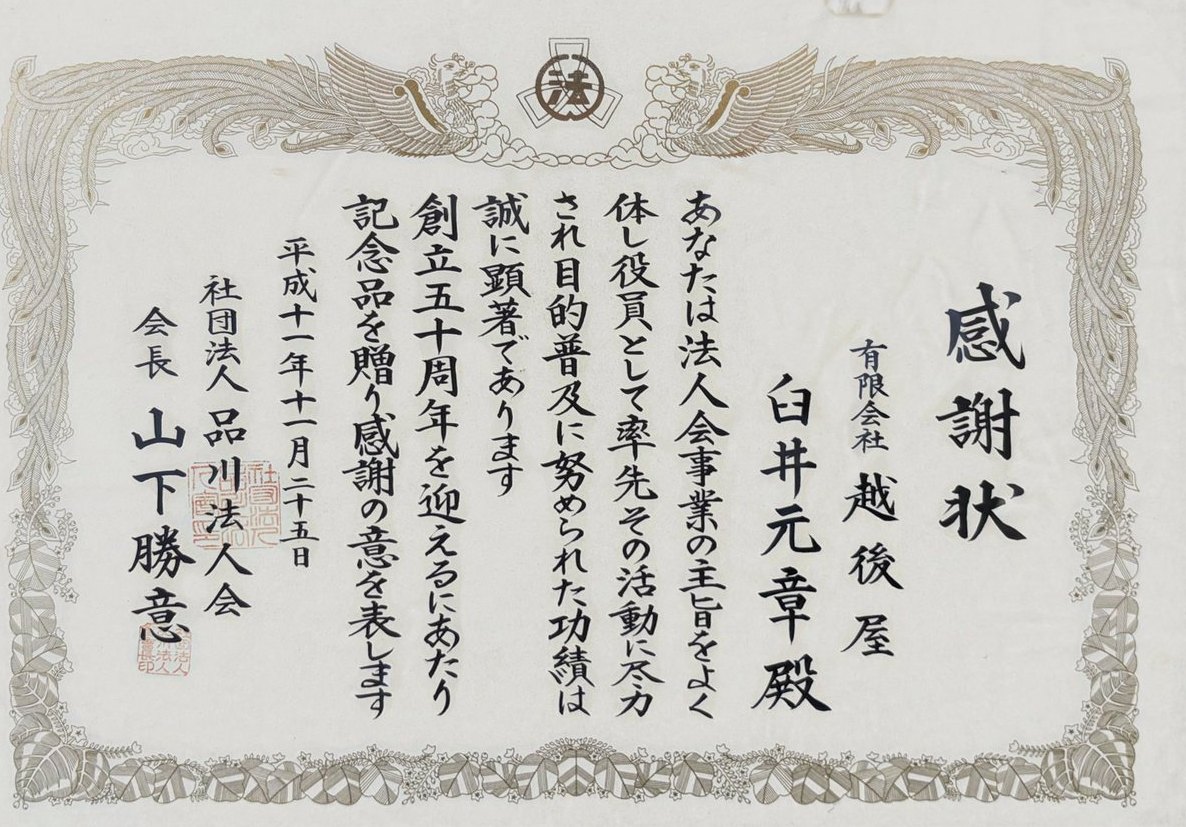 法
感謝状
有限会社 越後屋
臼井元章殿
あなたは法人会事業の主旨をよく
体し役員として率先その活動に尽力
され目的普及に努められた功績は
誠に顕著であります
創立五十周年を迎えるにあたり
記念品を贈り感謝の意を表します
平成十一年十一月二十五日
社団法人 品川法人会
会長 山下勝意